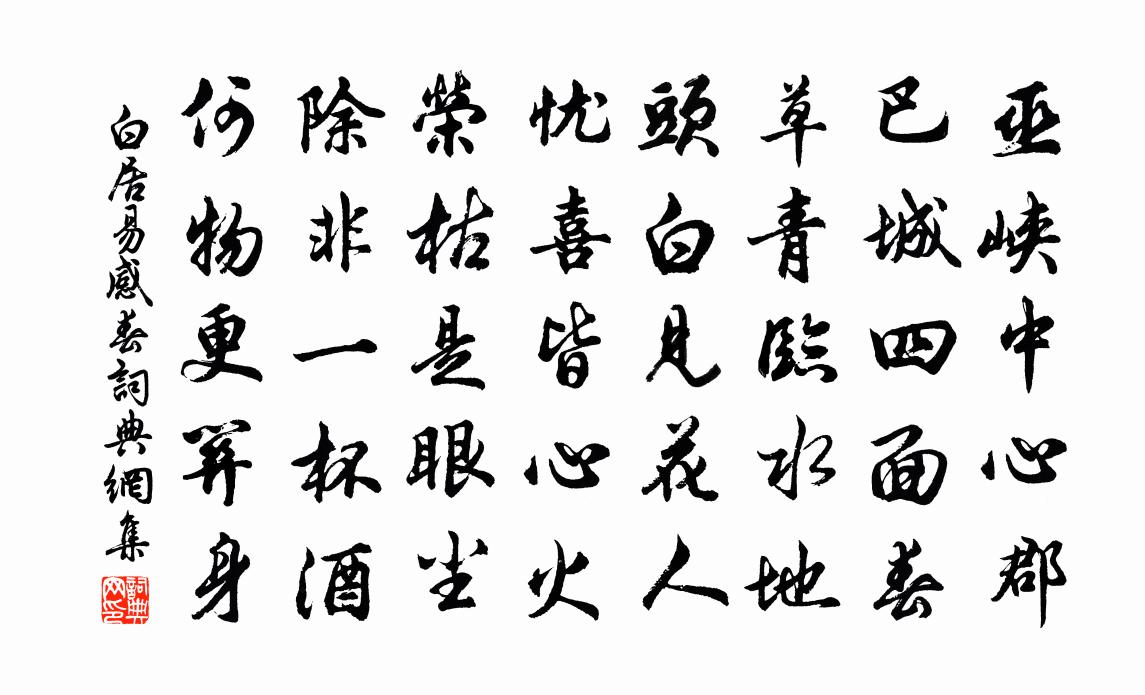 巫峡中心郡
巴城四面春
草青臨水地
頭白見花人
忧喜皆心火
榮枯是眼尘
除非一杯酒
何物更關身
白居易感春詞典網集
詞典
网印